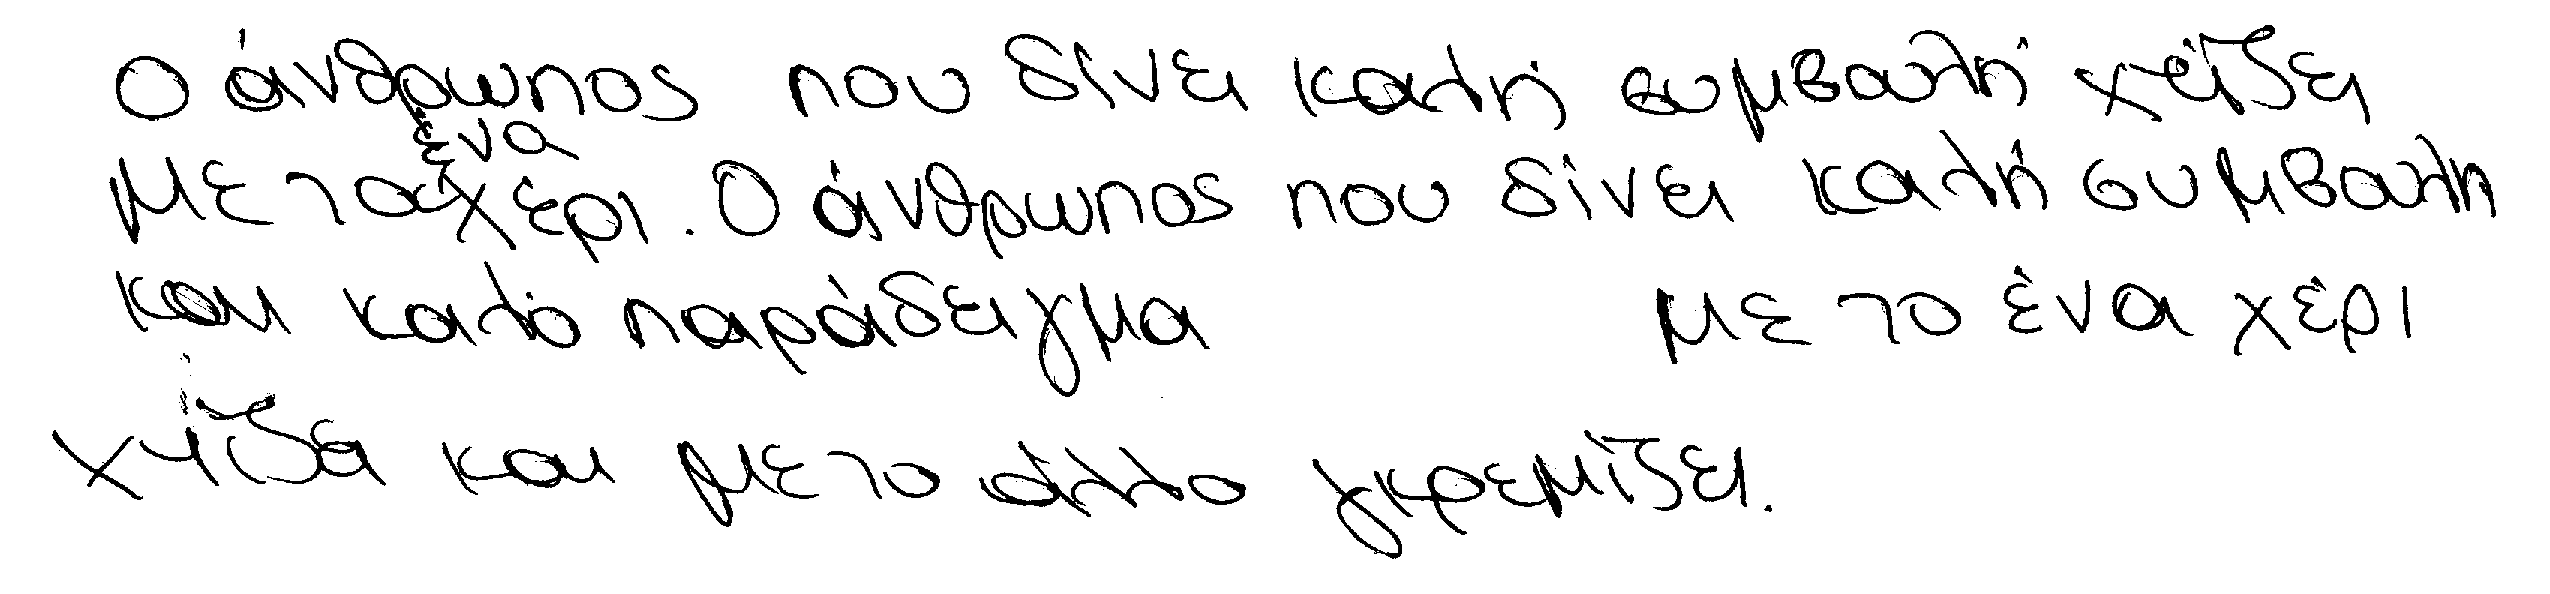 Ο άνθρωπος που δίνει καλή συμβουλή χτίζει
με το ένα χέρι. Ο άνθρωπος που δίνει καλή συμβουλη
και καλό παράδειγμα με το ένα χέρι
χτίζει και με το άλλο γκρεμίζει.